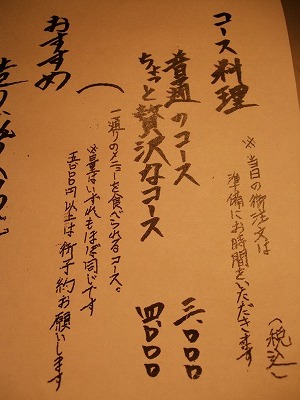 コース料理
※当日の御注文は
準備にお時間をいただきます
(税込)
普通のコース 三、〇〇〇
ちょっと贅沢なコース 四、〇〇〇
一通りのメニューを食べられるコース。
※量はいずれもほぼ同じです
五〇〇〇円以上は御予約お願いします
おすすめ